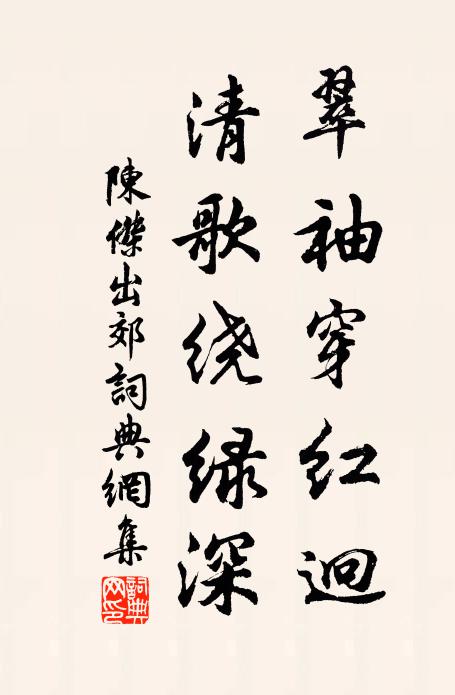 翠袖穿红迥
清歌绕绿深
陳傑出郊詞典網集
詞典
网印